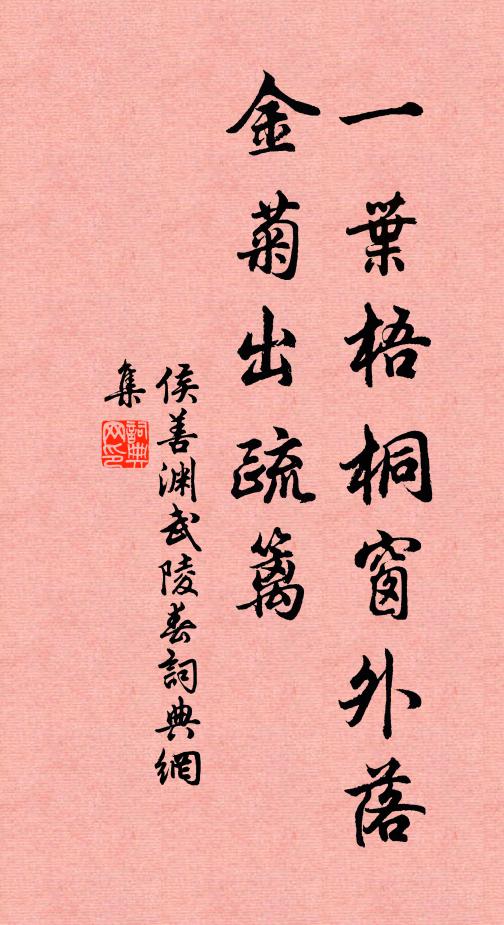 一葉梧桐窗外落
金菊出疏籬
侯善淵武陵春詞典網
集
詞典
网印